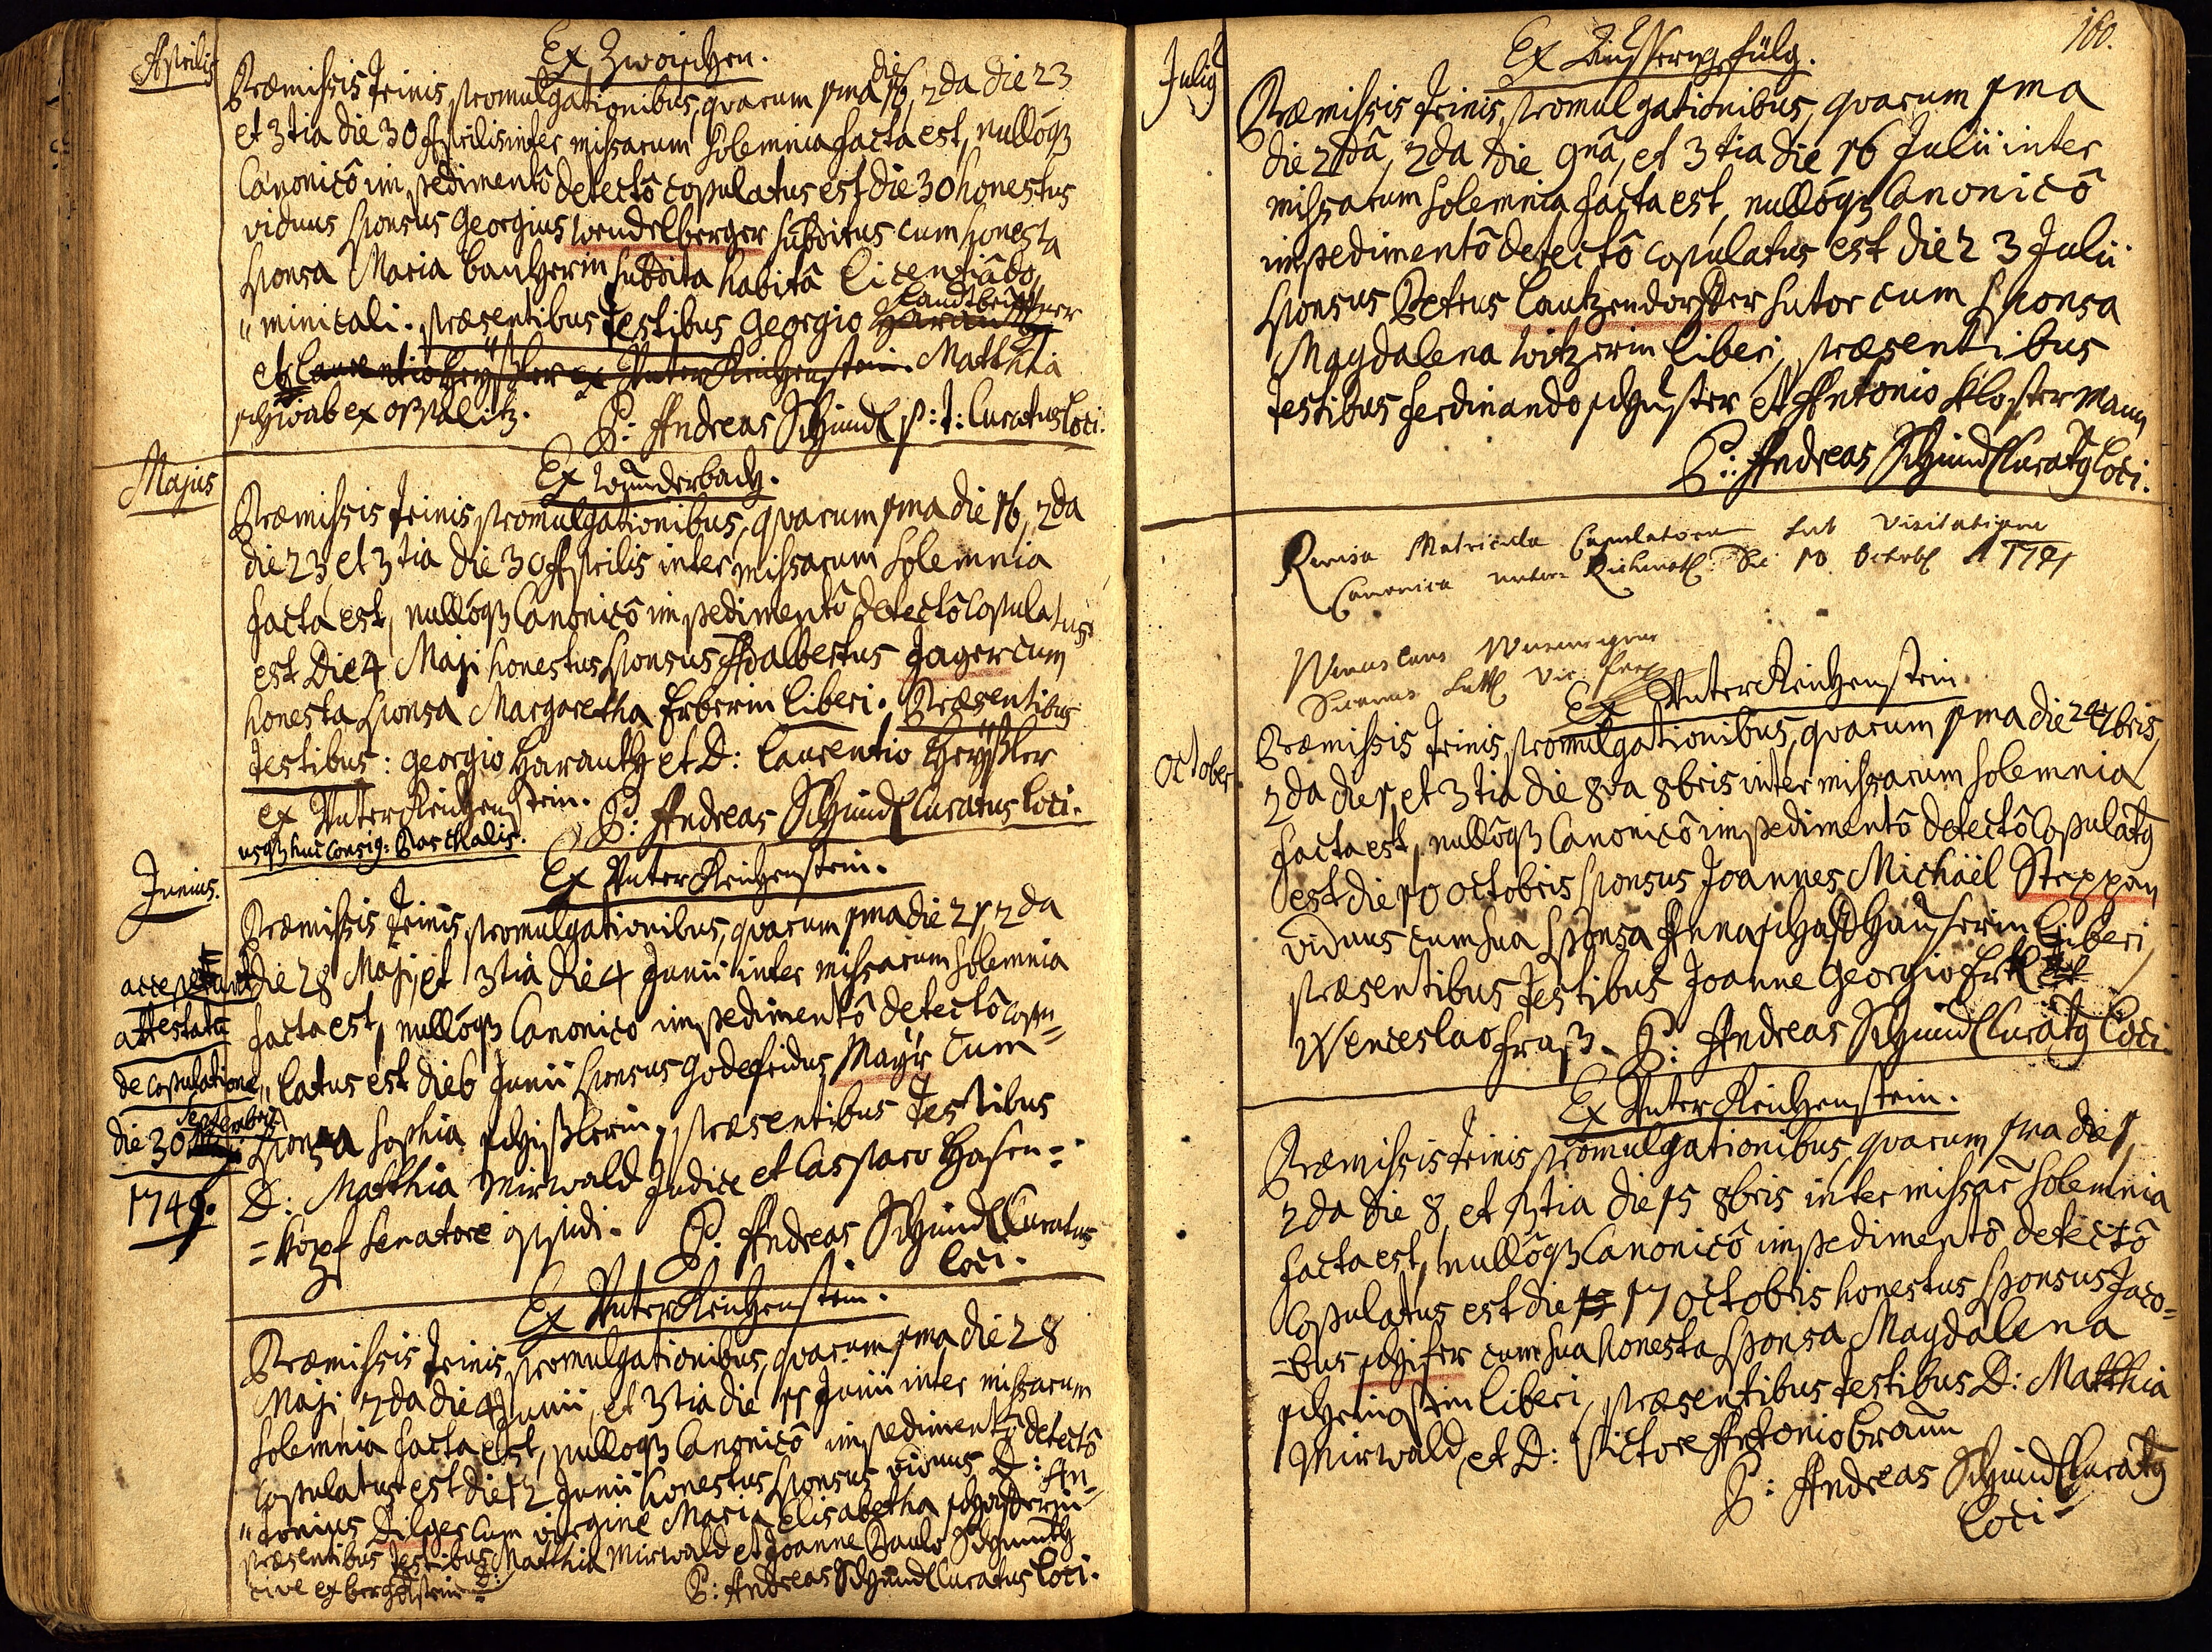 Aprilis
Ex Zwoischen.
Præmissis trinis promulgationibus, quarum 1ma die 16, 2da die 23
et 3tia die 30 Aprilis inter missarum solemnia facta est, nullôq3
Canonicô impedimentô detectô copulatus est die 30 honestus
viduus sponsus Georgius Wendelberger subditus cum honesta
sponsa Maria subdita habitâ licentiâ do„
„minicali. præsentibus testibus Georgio
et Laurentio Heyßler ex Unter Reichenstein. Matthia
schwab ex oppalitz.
P: Andreas Schmidl p: t: Curatus loci.
Majus
Ex Wunderbach.
Præmissis trinis promulgationibus, quarum 1ma die 16, 2da
die 23 et 3tia die 30 Aprilis inter missarum solemnia
facta est, nullôq3 Canonicô impedimentô detectô Copulatus
est Die 4 Maji honestus sponsus Adalbertus Jager cum
honesta sponsa Margaretha Erberin liberi. Præsentibus
testibus: Georgio Haranth et D: Laurentio Heyßler
ex Unter Reichenstein. P: Andreas Schmidl Curatus loci.
usq3 huc consig: Paschalis.
Junius.
Ex Unter Reichenstein.
Præmissis trinis promulgationibus, quarum 1ma die 21, 2da
die 28 Maji, et 3tia die 4 Junii inter missarum solemnia
facta est, nullôq3 Canonico impedimentô detectô Copu=
„latus est die 6 Junii sponsus Godefridus Mayr cum
sponsa Sophia schißlerin, præsentibus testibus
D: Matthia Mirwald Judice et Casparo Hasen=
=kopf senatore P: Andreas Schmidl Curatus
loci.
attestata
de copulatione
die 30 Septembris
1749.
Ex Unter Reichenstein.
Præmissis trinis promulgationibus, quarum 1ma die 28
Maji, 2da die 4 Junii, et 3tia die 11 Junii inter missarum
solemnia facta est, nulloq3 Canonicô impedimentô detectô
Copulatus est die 12 Junii honestus sponsus viduus D: An=
„tonius Dilger cum virgine Maria Elisabetha
præsentibus testibus D: Matthia Mirwald et Joanne Paulo Schmidth
cive ex bergstein. P: Andreas Schmidl Curatus loci.
160.
Julig
Ex
Præmissis trinis promulgationibus, quarum 1ma
die 2dâ, 2da die 9nâ, et 3tia die 16 Julii inter
missarum solemnia facta est, nullôq3 Canonicô
impedimentô detectô copulatus est die 23 Julii
sponsus Petrus Lautzendorffer sutor cum sponsa
Magdalena Witzerin liberi, præsentibus
testibus Ferdinando schuster et Antonio Klostermann
P: Andreas Schmidl Curatg loci.
Revisa Matricula Copulatorum sub Visitatione
Canonica Die 10 Octobr. A 1741
October.
Ex Unter Reichenstein.
Præmissis trinis promulgationibus, quarum 1ma die 24 7bris,
2da die 1, et 3tia die 8va 8bris inter missarum solemnia
facta est, nullôq3 Canonicô impedimentô detectô Copulatg
est die 10 octobris sponsus Joannes Michaël Steppan
viduus cum sua sponsa Anna schaffhauserin liberi,
præsentibus testibus Joanne Georgio
Wenceslao Fraß. P: Andreas Schmidl Curatg loci.
Ex Unter Reichenstein.
Præmissis trinis promulgationibus, quarum 1ma die 1,
2da die 8, et 3tia die 15 8bris inter missar solemnia
facta est, nullôq3 Canonicô impedimentô detectô
Copulatus est die 17 octobris honestus sponsus Jaco=
=bus schifer cum sua honesta sponsa Magdalena
liberi, præsentibus testibus D: Matthia
Mirwald, et D: Victore Antonio braun
P: Andreas Schmidl Curatg
loci